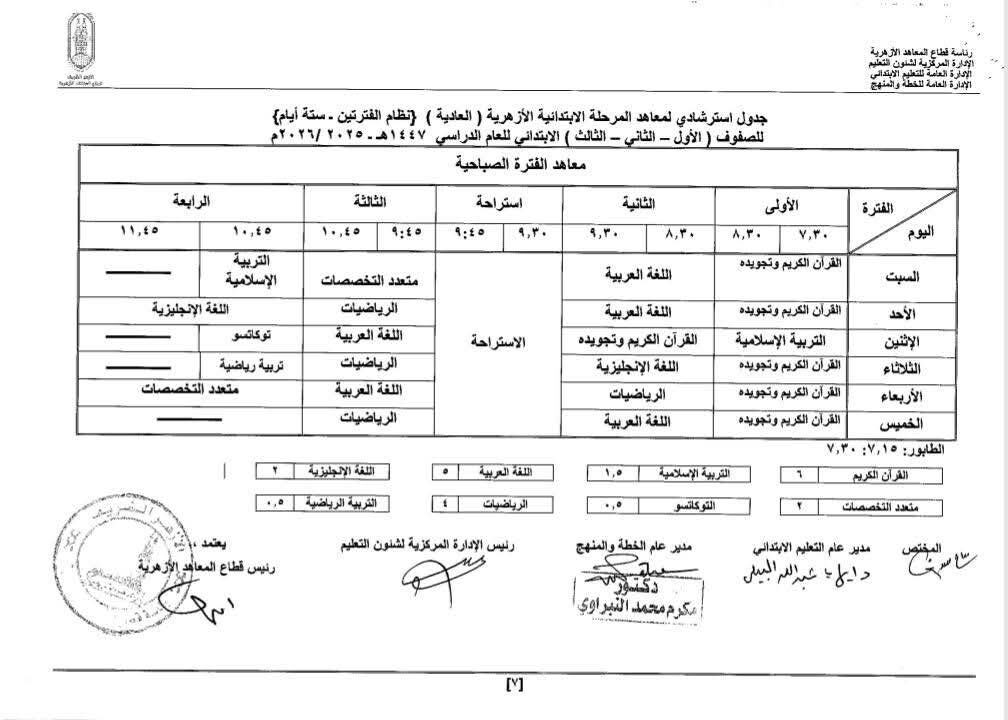 رئاسة قطاع المعاهد الأزهرية
الإدارة المركزية لشئون التعليم
الإدارة العامة للتعليم الابتدائي
الإدارة العامة للخطة والمنهج
الأزهر الشريف
قطاع المعاهد الأزهرية
جدول استرشادي لمعاهد المرحلة الابتدائية الأزهرية ( العادية ) {نظام الفترتين ـ ستة أيام}
للصفوف ( الأول – الثاني – الثالث ) الابتدائي للعام الدراسي ١٤٤٧هـ - ٢٠٢٥ /٢٠٢٦م
معاهد الفترة الصباحية
الفترة اليوم الأولى الثانية استراحة الثالثة الرابعة
٧,٣٠ ٨,٣٠ ٨,٣٠ ٩,٣٠ ٩,٣٠ ٩:٤٥ ٩:٤٥ ١٠,٤٥ ١٠,٤٥ ١١,٤٥
السبت القرآن الكريم وتجويده اللغة العربية متعدد التخصصات التربية الإسلامية
الأحد القرآن الكريم وتجويده اللغة العربية الرياضيات اللغة الإنجليزية
الإثنين التربية الإسلامية القرآن الكريم وتجويده الاستراحة اللغة العربية توكاتسو
الثلاثاء القرآن الكريم وتجويده اللغة الإنجليزية الرياضيات تربية رياضية
الأربعاء القرآن الكريم وتجويده الرياضيات اللغة العربية متعدد التخصصات
الخميس القرآن الكريم وتجويده اللغة العربية الرياضيات
الطابور: ٧,١٥: ٧,٣٠
القرآن الكريم ٦ التربية الإسلامية ١,٥ اللغة العربية ٥ اللغة الإنجليزية ٢
متعدد التخصصات ٢ التوكاتسو ٠,٥ الرياضيات ٤ التربية الرياضية ٠,٥
المختص مدير عام التعليم الابتدائي مدير عام الخطة والمنهج رئيس الإدارة المركزية لشئون التعليم يعتمد ،،
رئيس قطاع المعاهد الأزهرية
دكتور
مكرم محمد النبراوي
[٧]